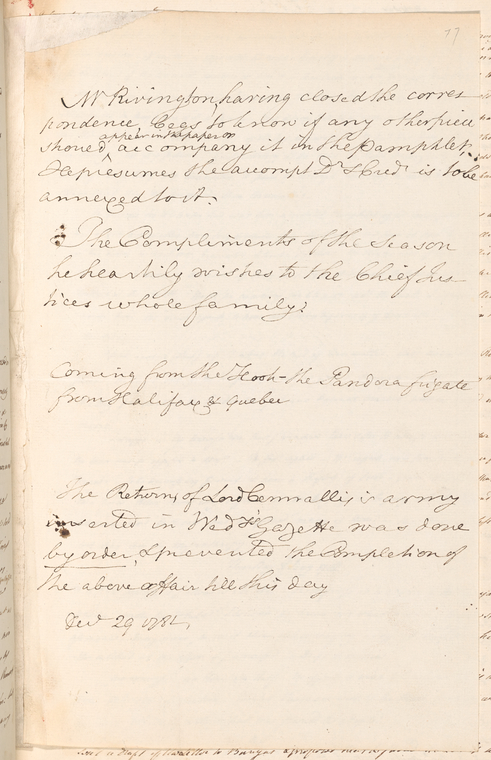 77
Mr Rivington, having closed the corres
pondence, begs to know if any other piece
appear in the paper or
shoued accompany it in the Pamphlet,
Hapresumes the accompt Dr & Credr is to be
annexed to it.
The Compliments of the Season
he heartily wishes to the Chief Jus
tices whole family!
Coming from the Hook - the Pandora frigate
from Halifax & Quebec
The Return of Lord Cornwallis's army
inserted in Wedy's Gazette was done
by order, & prevented the Completion of
the above affair till this day
Decr 29 1781,